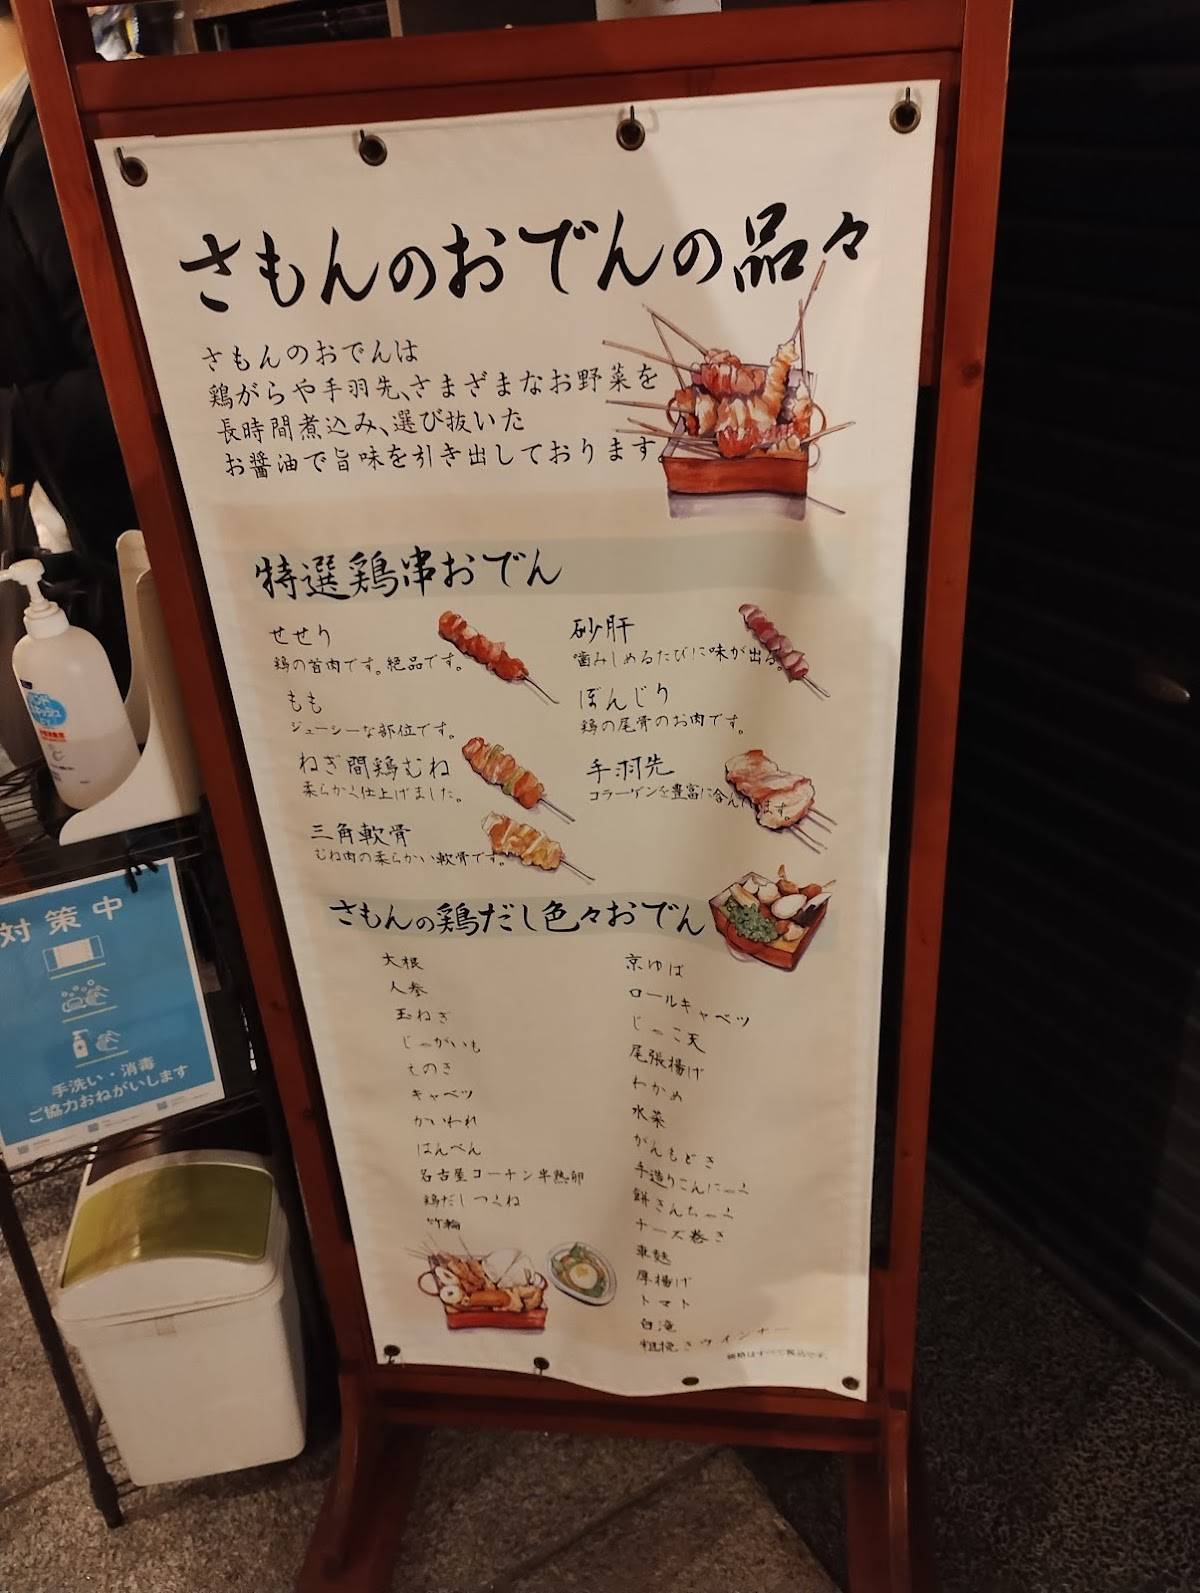 さもんのおでんの品々
さもんのおでんは
鶏がらや手羽先、さまざまなお野菜を
長時間煮込み、選び抜いた
お醤油で旨味を引き出しております。
特選鶏串おでん
せせり
鶏の首肉です。絶品です。
もも
ジューシーな部位です。
ねぎ間鶏むね
柔らかく仕上げました。
三角軟骨
むね肉の柔らかい軟骨です。
砂肝
噛みしめるたびに味が出る。
ぼんじり
鶏の尾骨のお肉です。
手羽先
コラーゲンを豊富に含んでいます。
さもんの鶏だし色々おでん
大根
人参
玉ねぎ
じゃがいも
えのき
キャベツ
かいわれ
はんぺん
名古屋コーチン半熟卵
鶏だしつくね
竹輪
京ゆば
ロールキャベツ
じゃこ天
尾張揚げ
わかめ
水菜
がんもどき
手造りこんにゃく
餅きんちゃく
チーズ巻き
車麩
厚揚げ
トマト
白滝
粗挽きウインナー
価格はすべて税込です。
対策中
手洗い・消毒
ご協力おねがいします